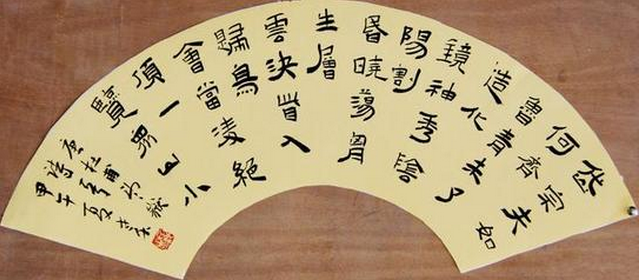 岱宗夫如
何齊
魯青未了
造化
鍾神秀陰
陽割
昏曉蕩胸
生層
雲決眥入
歸鳥
會當凌絕
頂一
覽眾山小
唐杜甫望嶽
甲午夏